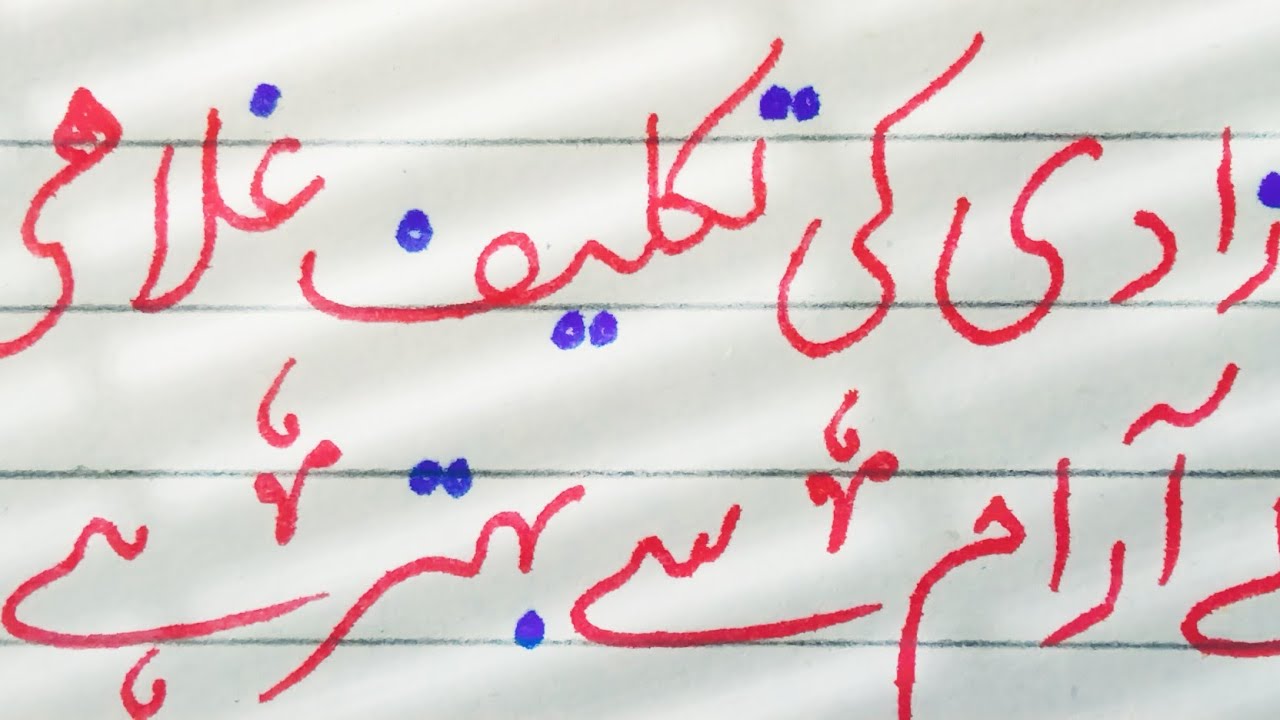 زادی کی تکلیف غلامی
کے آرام سے بہتر ہے